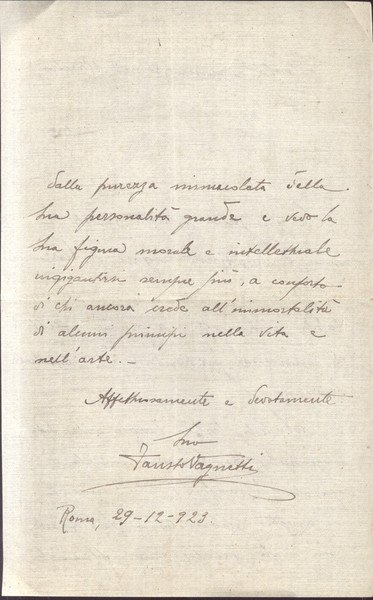 dalla purezza immacolata della
Sua personalità grande e vedo la
Sua figura morale e intellettuale
ingigantirsi sempre più, a conforto
di chi ancora crede all'immortalità
di alcuni principi nella vita e
nell'arte. —
Affettuosamente e devotamente
Suo
Fausto Vagnetti
Roma, 29-12-923.